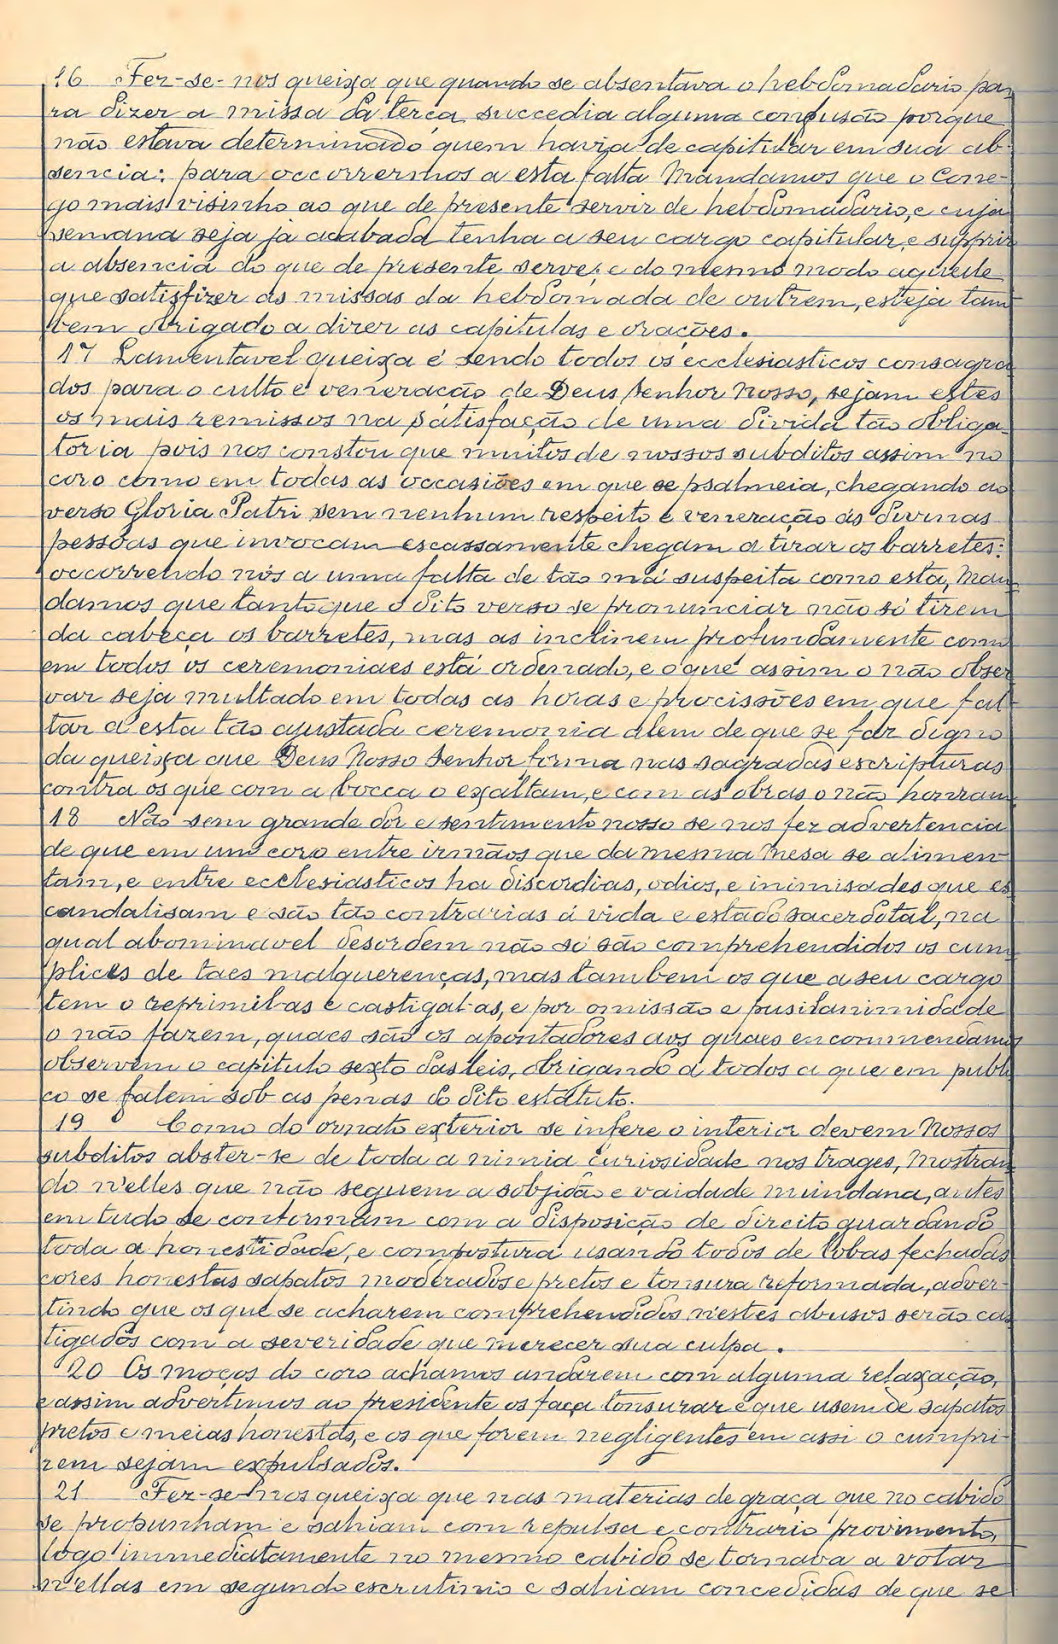 16 Fez-se-nos queixa que quando se absentava o hebdomadario pa-
ra dizer a missa da terça succedia alguma confusão porque
não estava determinado quem havia de capitular em sua ab-
sencia: para occorrermos a esta falta Mandamos que o Cone-
go mais visinho ao que de presente servir de hebdomadario, e cuja
semana seja já acabada tenha a seu cargo capitular, e supprir
a absencia do que de presente serve, e do mesmo modo aquelle
que satisfizer as missas da hebdomada de outrem, esteja tam
bem obrigado a dizer as capitulas e orações.
17 Lamentavel queixa é sendo todos os ecclesiasticos consagra
dos para o culto e veneração de Deus Senhor Nosso, sejam estes
os mais remissos na satisfação de uma divida tão obliga-
toria pois nos constou que muitos de nossos subditos assim no
coro como em todas as occasiões em que se psalmeia, chegando ao
verso Gloria Patri sem nenhum respeito e veneração ás divinas
pessoas que invocam escassamente chegam a tirar os barretes:
occorrendo nós a uma falta de tão má suspeita como esta, Man-
damos que tanto que o dito verso se pronunciar não só tirem
da cabeça os barretes, mas as inclinem profundamente como
em todos os ceremoniaes está ordenado, e o que assim o não obser
var seja multado em todas as horas e procissões em que fal-
tar a esta tão ajustada ceremonia alem de que se faz digno
da queixa que Deus Nosso Senhor forma nas sagradas escripturas
contra os que com a bocca o exaltam, e com as obras o não honram
18 Não sem grande dôr e sentimento nosso se nos fez advertencia
de que em um coro entre irmãos que da mesma Mesa se alimen-
tam, e entre ecclesiasticos ha discordias, odios, e inimisades que es
candalisam e são tão contrarias á vida e estado sacerdotal, na
qual abominavel desordem não só são comprehendidos os cum
plices de taes malquerenças, mas tambem os que a seu cargo
tem o reprimil-as e castigal-as, e por omissão e pusilanimidade
o não fazem, quaes são os apontadores aos quaes encommendamos
observem o capitulo sexto das leis, obrigando a todos a que em publi
co se falem sob as penas do dito estatuto.
19 Como do ornato exterior se infere o interior devem Nossos
subditos abster-se de toda a nimia curiosidade nos trages, Mostran
do n'elles que não seguem a vaidade mundana, antes
em tudo se conformam com a disposição de direito guardando
toda a honestidade, e compostura usando todos de lobas fechadas
cores honestas sapatos moderados e pretos e tonsura reformada, adver-
tindo que os que se acharem comprehendidos n'estes abusos serão cas
tigados com a severidade que merecer sua culpa.
20 Os moços do coro achamos andarem com alguma relaxação,
e assim advertimos ao presidente os faça tonsurar e que usem de sapatos
pretos e meias honestas, e os que forem negligentes em assi o cumpri-
rem sejam expulsados.
21 Fez-se-nos queixa que nas materias de graça que no cabido
se propunham e sahiam com repulsa e contrario provimento,
logo immediatamente no mesmo cabido se tornava a votar
n'ellas em segundo escrutinio e sahiam concedidas de que se